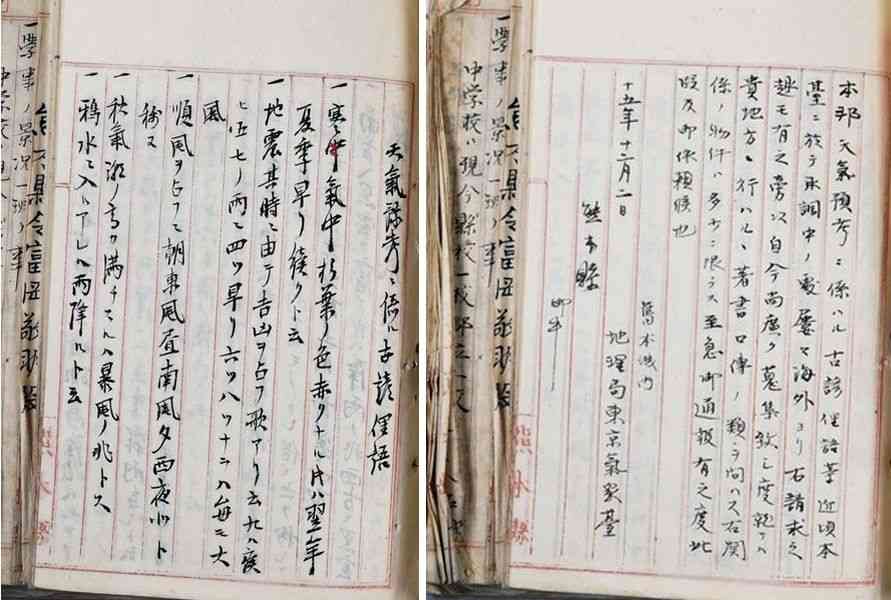 天氣豫考ニ係ル古諺俚語
一寒中氣中杉葉ノ色赤クナル片ハ翌年
夏季旱リ續クト云
一地震其時ニ由テ吉凶ヲ占フ歌アリ云九ハ病
五七ノ雨ニ四ツ旱リ六ツ八ツナラハ毎モ大
風
一順風ヲ占フニ朝東風昼南風夕西夜北ト
称ス
一秋氣潮ノ高ク満チタルハ暴風ノ兆トス
一鴉水ニ入トアレハ雨降ルト云
本邦天氣預考ニ係ハル古諺俚語等近頃本
臺ニ於テ取調中ノ處屡々海外ヨリ右請求之
趣モ有之旁以自今尚廣ク蒐集致シ度就テハ
貴地方ニ行ハルヽ著書口傳ノ類ヲ問ハス右関
係ノ物件ハ多少ニ限ラス至急御通報有之度此
段及御依頼候也
熊本城内
地理局東京氣象臺
十五年十二月二日
熊本縣
御中
一學事ノ景況一班ノ事
中学校ハ現今縣校一校
熊本縣